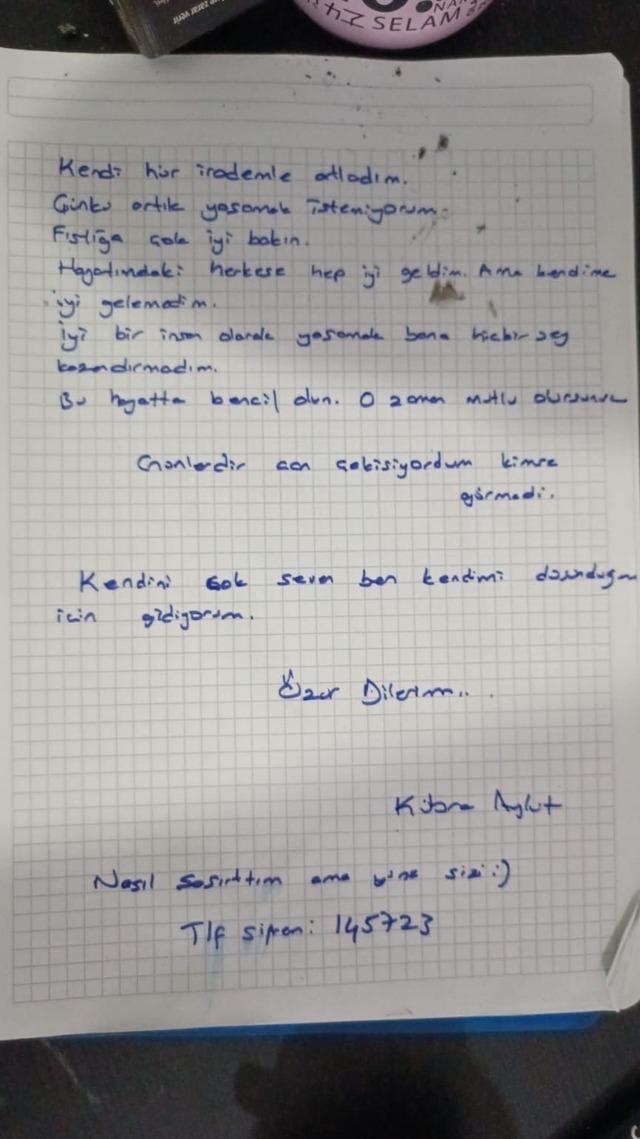 SELAM
zarar verir
Kendi hür irademle atladım.
Çünkü artık yaşamak istemiyorum.
Fıstığa çok iyi bakın.
Hayatındaki herkese hep iyi geldim. Ama kendime
iyi gelemedim.
İyi bir insan olarak yaşamak bana hiçbir şey
kazandırmadım.
Bu hayatta bencil olun. O zaman mutlu olursunuz
Günlerdir can çekişiyordum kimse
görmedi.
Kendini çok seven ben kendimi düşündüğüm
için gidiyorum.
Özür Dilerim...
Kübra Aykut
Nasıl şaşırttım ama yine sizi :)
Tlf şifrem: 145723